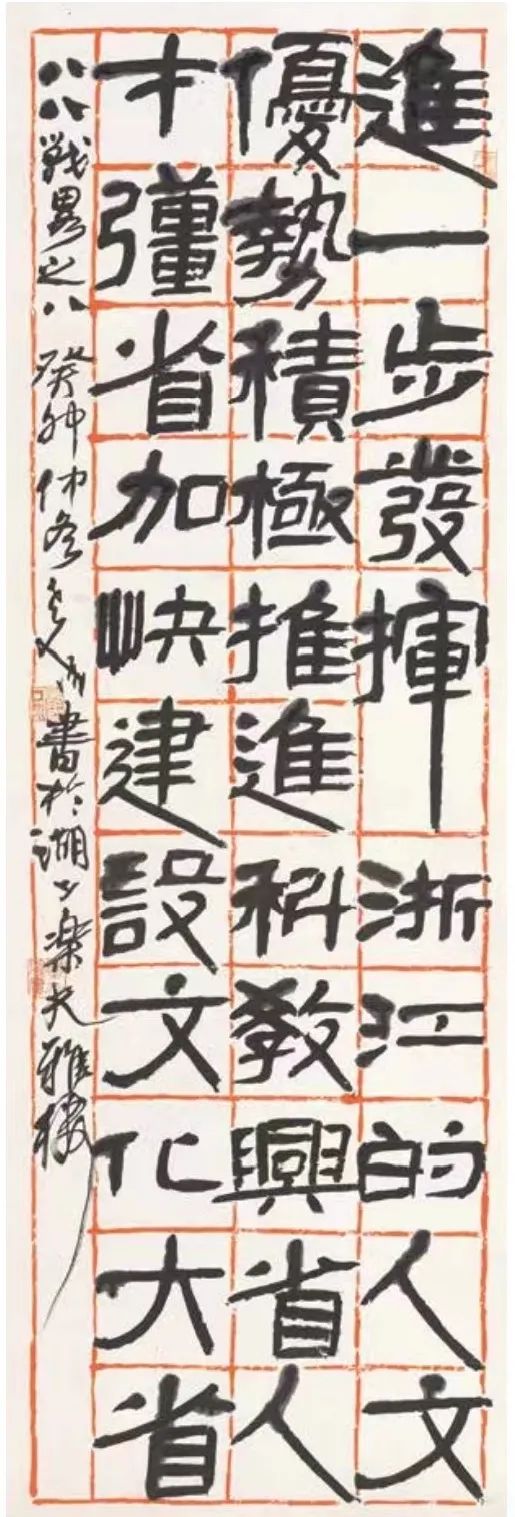 進一步發揮浙江的人文
優勢積極推進科教興省人
才彊省加快建設文化大省
八八戰略之八 癸卯仲冬 書於湖上樂天雅樓